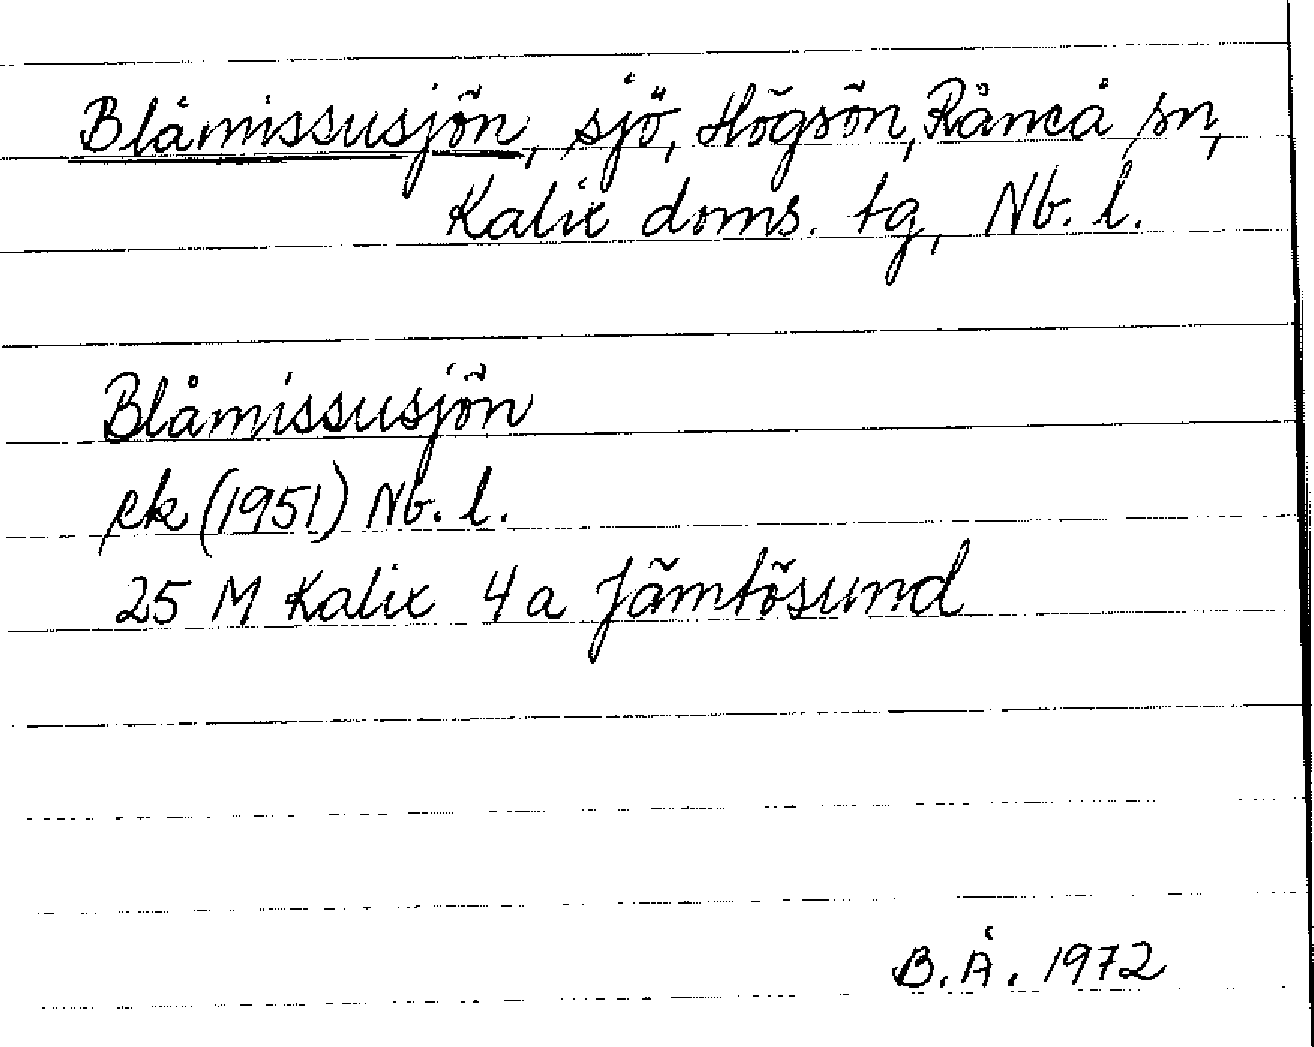 Blåmissusjön, sjö, Högsön, Råneå sn,
Kalix doms. tg, Nb. l.
Blåmissusjön
ek (1951) Nb. l.
25 M Kalix 4a Jämtösund
B.Å. 1972